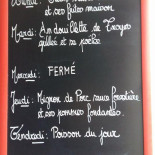 et ses frites maison
Mardi: Andouillette de Troyes
grillée et sa poêlée
Mercredi: FERMÉ
Jeudi: Mignon de Porc sauce forestière
et ses pommes fondantes.
Vendredi: Poisson du jour